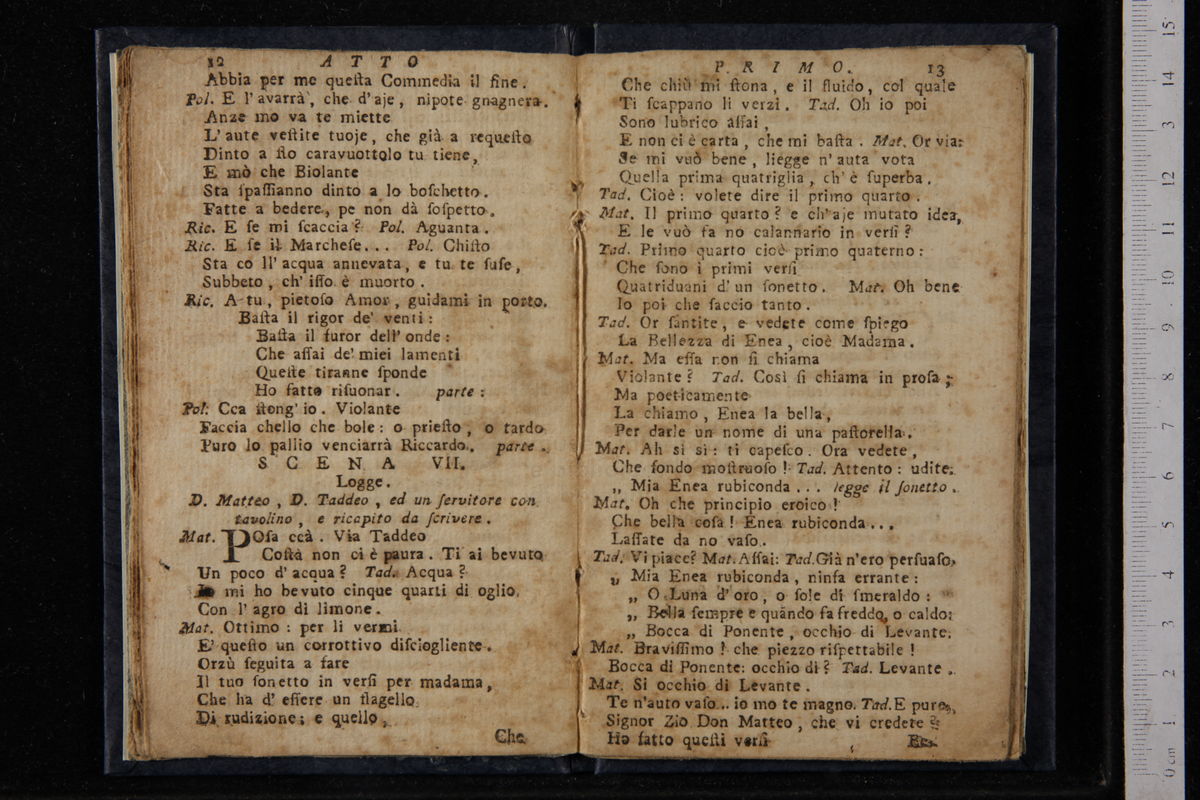 12 ATTO
Abbia per me queſta Commedia il fine.
Pol. E l'avarrà, che d'aje, nipote gnagnera.
Anze mo va te miette
L'aute veſtite tuoje, che già a requeſto
Dinto a ſto caravuottolo tu tiene,
E mò che Biolante
Sta ſpaſſianno dinto a lo boſchetto.
Fatte a bedere, pe non dà ſoſpetto.
Ric. E ſe mi ſcaccia? Pol. Aguanta.
Ric. E ſe il Marcheſe... Pol. Chiſto
Sta co ll'acqua annevata, e tu te ſuſe,
Subbeto, ch'iſſo è muorto.
Ric. A tu, pietoſo Amor, guidami in porto.
Baſta il rigor de' venti:
Baſta il furor dell'onde:
Che aſſai de' miei lamenti
Queſte tiranne ſponde
Ho fatto riſuonar. parte:
Pol: Cca ſtong'io. Violante
Faccia chello che bole: o prieſto, o tardo
Puro lo pallio venciarrà Riccardo. parte.
SCENA VII.
Logge.
D. Matteo, D. Taddeo, ed un ſervitore con
tavolino, e ricapito da ſcrivere.
Mat. POſa ccà. Via Taddeo
Coſtà non ci è paura. Ti ai bevuto
Un poco d'acqua? Tad. Acqua?
Io mi ho bevuto cinque quarti di oglio,
Con l'agro di limone.
Mat. Ottimo: per li vermi.
E' queſto un corrottivo diſciogliente.
Orzù ſeguita a fare
Il tuo ſonetto in verſi per madama,
Che ha d'eſſere un flagello
Di rudizione; e quello,
Che
PRIMO. 13
Che chiù mi ſtona, e il fluido, col quale
Ti ſcappano li verzi. Tad. Oh io poi
Sono lubrico aſſai,
E non ci è carta, che mi baſta. Mat. Or via:
Se mi vuò bene, liegge n'auta vota
Quella prima quatriglia, ch'è ſuperba.
Tad. Cioè: volete dire il primo quarto.
Mat. Il primo quarto? e ch'aje mutato idea,
E le vuò fa no calannario in verſi?
Tad. Primo quarto cioè primo quaterno:
Che ſono i primi verſi
Quatriduani d'un ſonetto. Mat. Oh bene
Io poi che ſaccio tanto.
Tad. Or ſantite, e vedete come ſpiego
La Bellezza di Enea, cioè Madama.
Mat. Ma eſſa non ſi chiama
Violante? Tad. Così ſi chiama in proſa;
Ma poeticamente
La chiamo, Enea la bella,
Per darle un nome di una paſtorella.
Mat. Ah sì sì: ti capeſco. Ora vedete,
Che fondo moſtruoſo! Tad. Attento: udite.
„ Mia Enea rubiconda... legge il ſonetto.
Mat. Oh che principio eroico!
Che bella coſa! Enea rubiconda...
Laſſate da no vaſo.
Tad. Vi piace? Mat. Aſſai: Tad. Già n'ero perſuaſo,
„ Mia Enea rubiconda, ninfa errante:
„ O Luna d'oro, o ſole di ſmeraldo:
„ Bella ſempre e quando fa freddo, o caldo:
„ Bocca di Ponente, occhio di Levante.
Mat. Braviſſimo! che piezzo riſpettabile!
Bocca di Ponente: occhio di? Tad. Levante.
Mat. Si occhio di Levante.
Te n'auto vaſo.. io mo te magno. Tad. E pure,
Signor Zio Don Matteo, che vi credete?
Ho fatto queſti verſi